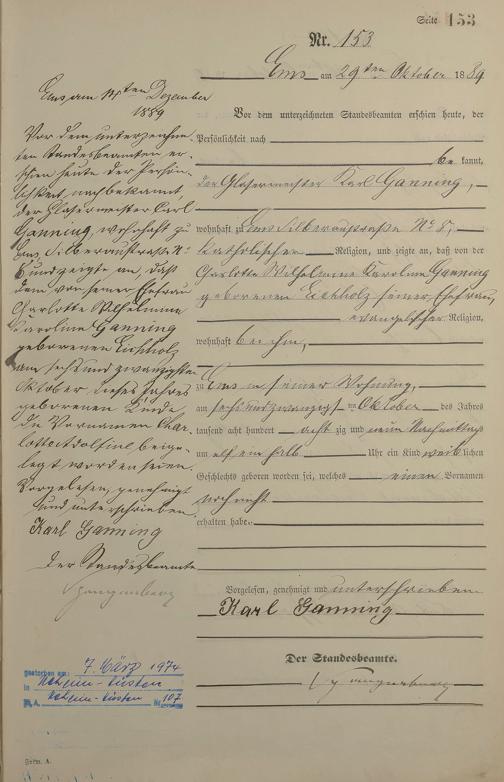 Seite 153
Nr. 153
Ems am 29ten Oktober 1889
Vor dem unterzeichneten Standesbeamten erschien heute, der
Persönlichkeit nach
be kannt,
der Glasermeister Karl Ganning,
wohnhaft zu Ems Silberaustraße No 8,
katholischer Religion, und zeigte an, daß von der
Charlotte Wilhelmine Caroline Ganning
geborenen Eichholz seiner Ehefrau,
evangelischer Religion,
wohnhaft bei ihm,
zu Ems in seiner Wohnung,
am sechsundzwanzigst en Oktober des Jahres
tausend acht hundert acht zig und neun Nachmittags
um elf ein halb Uhr ein Kind weiblichen
Geschlechts geboren worden sei, welches einen Vornamen
noch nicht
erhalten habe.
Vorgelesen, genehmigt und unterschrieben
Karl Ganning
Der Standesbeamte.
Ems am ten Dezember
1889
Vor dem unterzeichne-
ten Standesbeamten er-
schien heute der Persön-
lichkeit nach bekannt
der Glasermeister Carl
Ganning, wohnhaft zu
Ems, Silberaustraße No
und zeigte an, daß
dem von seiner Ehefrau
Charlotte Wilhelmine
Caroline Ganning
geborenen Eichholz
am sechsundzwanzigsten
Oktober dieses Jahres
geborenen Kinde,
die Vornamen Char-
lotte Adolfine beige-
legt worden seien.
Vorgelesen, genehmigt
und unterschrieben
Karl Ganning
Der Standesbeamte
gestorben am: 7. März 1974
in Nordrhein-Küsten
St. A. 107
Form. A.